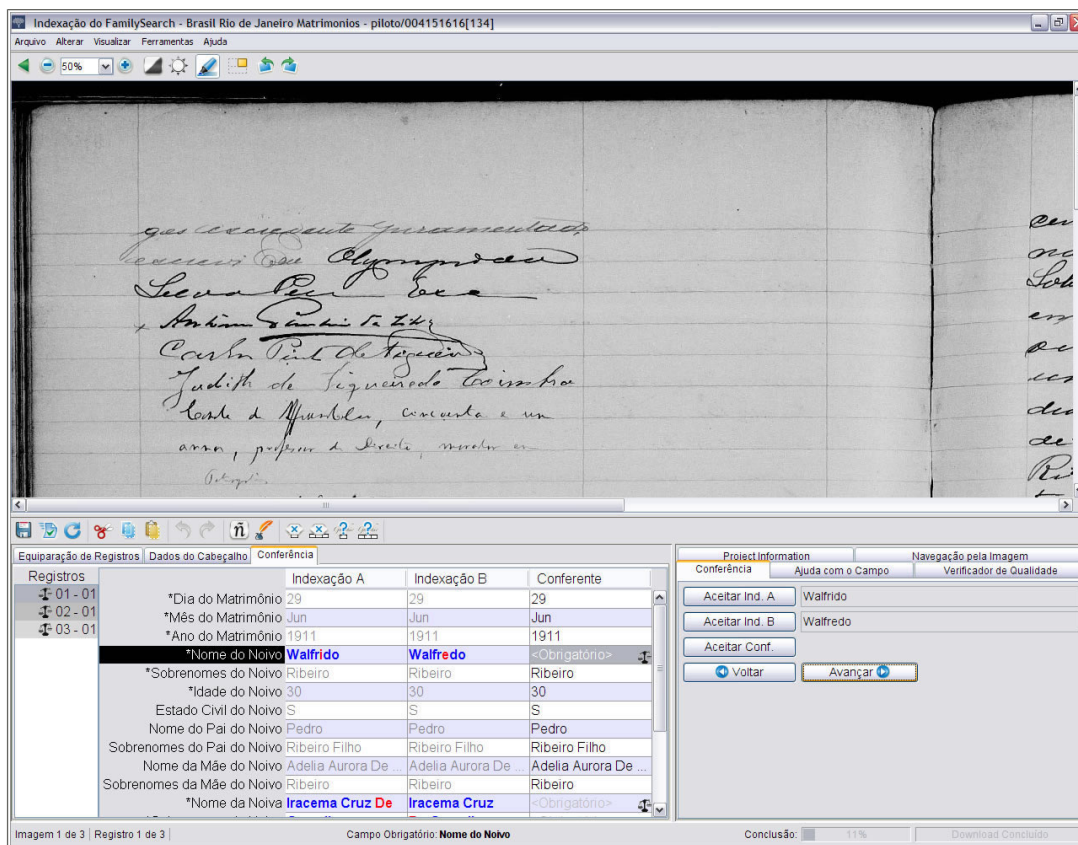 Indexação do FamilySearch - Brasil Rio de Janeiro Matrimonios - piloto/004151616[134]
Arquivo Alterar Visualizar Ferramentas Ajuda
50%
escrevi Eu Olympio da
Silva Pereira
Antonio
Carlos Pint de Figueir
Judith de Figueiredo Coimbra
Conde de Affonso Celso, cincoenta e um
annos, professor de Direito, morador em
Petropolis
Equiparação de Registros Dados do Cabeçalho Conferência
Registros Indexação A Indexação B Conferente
01 - 01
02 - 01
03 - 01
*Dia do Matrimônio 29 29 29
*Mês do Matrimônio Jun Jun Jun
*Ano do Matrimônio 1911 1911 1911
*Nome do Noivo Walfrido Walfredo <Obrigatório>
*Sobrenomes do Noivo Ribeiro Ribeiro Ribeiro
*Idade do Noivo 30 30 30
Estado Civil do Noivo S S S
Nome do Pai do Noivo Pedro Pedro Pedro
Sobrenomes do Pai do Noivo Ribeiro Filho Ribeiro Filho Ribeiro Filho
Nome da Mãe do Noivo Adelia Aurora De ... Adelia Aurora De ... Adelia Aurora De ...
Sobrenomes da Mãe do Noivo Ribeiro Ribeiro Ribeiro
*Nome da Noiva Iracema Cruz De Iracema Cruz <Obrigatório>
Project Information Navegação pela Imagem
Conferência Ajuda com o Campo Verificador de Qualidade
Aceitar Ind. A Walfrido
Aceitar Ind. B Walfredo
Aceitar Conf.
Voltar Avançar
Imagem 1 de 3 Registro 1 de 3 Campo Obrigatório: Nome do Noivo Conclusão: 11% Download Concluído